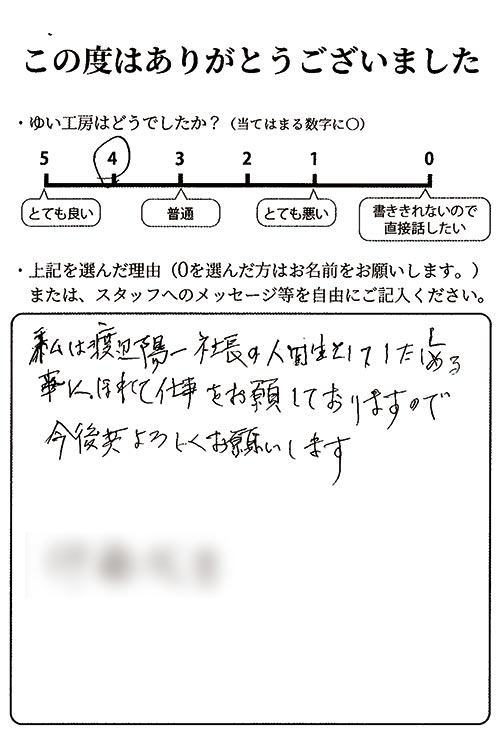 この度はありがとうございました
・ゆい工房はどうでしたか？（当てはまる数字に〇）
5 4 3 2 1 0
とても良い 普通 とても悪い 書ききれないので
直接話したい
・上記を選んだ理由（0を選んだ方はお名前をお願いします。）
または、スタッフへのメッセージ等を自由にご記入ください。
私は渡辺陽一社長の人間性として
事に、ほれて仕事をお願しておりますので
今後共よろしくお願いします